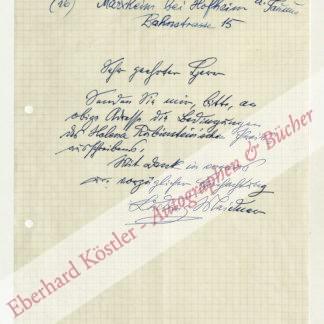 (16) Marxheim bei Hofheim a. Taunus
Bahnstrasse 15
Sehr geehrter Herr
Senden Sie mir, bitte, an
obige Adresse die Bedingungen
Helena Rubinstein'sche
Mit Dank in voraus
vorzüglicher Hochachtung
Eberhard Köstler - Autographen & Bücher